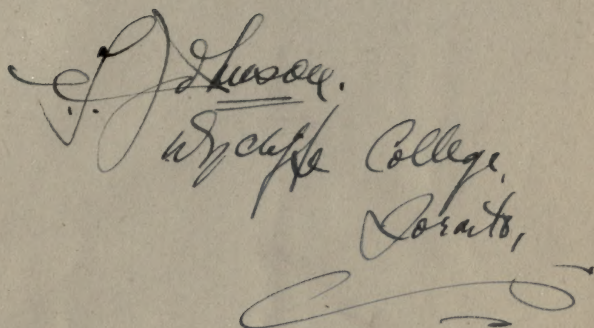 S. Johnson.
Wycliffe College,
Toronto,